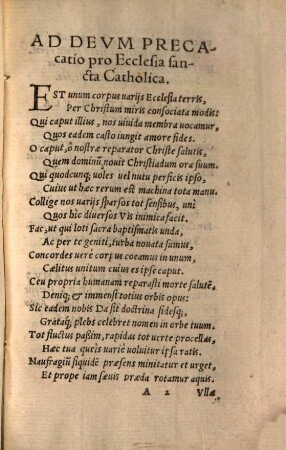 AD DEVM PRECA
catio pro Ecclesia san-
cta Catholica.
EST unum corpus varijs Ecclesia terris,
Per Christum miris consociata modis:
Qui caput illius, nos uiuida membra uocamur,
Quos eadem casto iungit amore fides.
O caput, ô nostræ reparator Christe salutis,
Quem dominũ nouit Christiadum ora suum.
Qui quodcunq; uoles uel nutu perficis ipso,
Cuius ut hæc rerum est machina tota manu.
Collige nos varijs sparsos tot sensibus, uni
Quos hîc diuersos Vis inimica facit.
Fac, ut qui loti sacra baptismatis unda,
Ac per te geniti, turba nouata sumus,
Concordes uerè corpus coeamus in unum,
Cælitus unitum cuius es ipse caput.
Ceu propria humanam reparasti morte salutẽ,
Deniq; & immensi totius orbis opus:
Sic eadem nobis Da sit doctrina fidesq;,
Grataq; plebs celebret nomen in orbe tuum.
Tot fluctus paßim, rapidas tot uerte procellas,
Hac tua queis variè voluitur ipsa ratis.
Naufragiũ siquidẽ præsens minitatur et urget,
Et prope iam sæuis præda rotamur aquis.
A 2 Vllæ